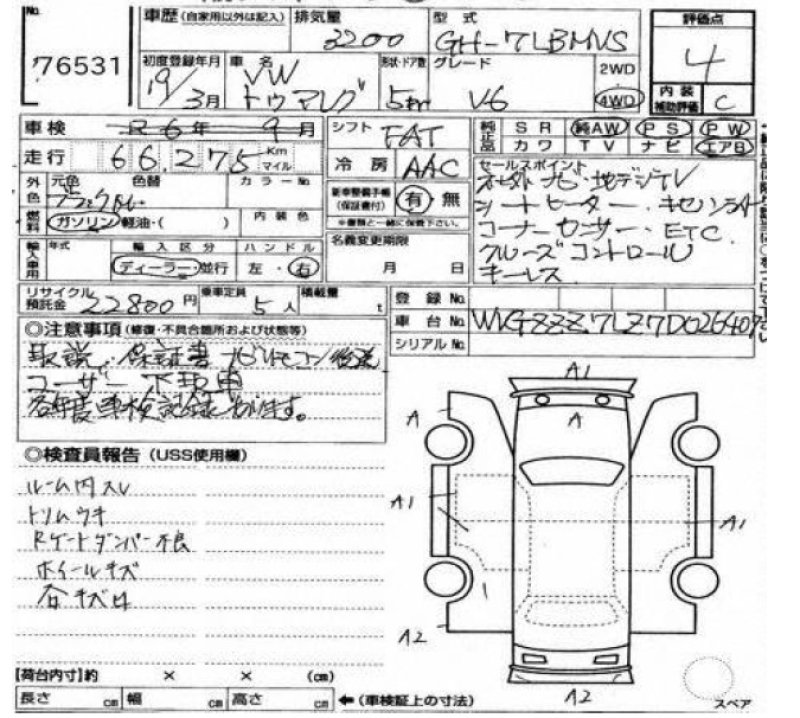 No.
76531
車歴(自家用以外は記入) 排気量 型式 評価点
3200 GH-7LBMVS 4
初度登録年月 車名 形状・ドア数 グレード 2WD
19/3月 VW トゥアレグ 5 V6 4WD
内装補助評価 C
車検 R6年9月 シフト FAT 純正 SR 純AW PS PW
カワ TV ナビ エアB
走行 66,275 Km マイル 冷房 AAC
セールスポイント
外色 元色 色替 カラーNo.
(保証書付) 有 無
社外ナビ・地デジTV
シートヒーター・キセノン
コーナーセンサー・ETC
クルーズコントロール
キーレス
燃料 ガソリン・軽油・( ) 内装色
※書類と一緒に保管下さい。
輸入車用 年式 輸入区分 ハンドル 名義変更期限
ディーラー・並行 左・右 月 日
リサイクル預託金 22800円 乗車定員 5人 積載量 t
登録No.
車台No. WVGZZZ7LZ7D026409
シリアルNo.
◎注意事項(修復・不具合箇所および状態等)
取説・保証書 ナビリモコン後送
ユーザー下取車
各年度車検記録簿あります。
◎検査員報告(USS使用欄)
ルーム内スレ
トリムウキ
Rゲートダンパー不良
ホイールキズ
各キズ凹
A1
A
A
A1
A1
A2
A2
【荷台内寸】約 × × (cm)
長さ cm 幅 cm 高さ cm ←(車検証上の寸法)
スペア